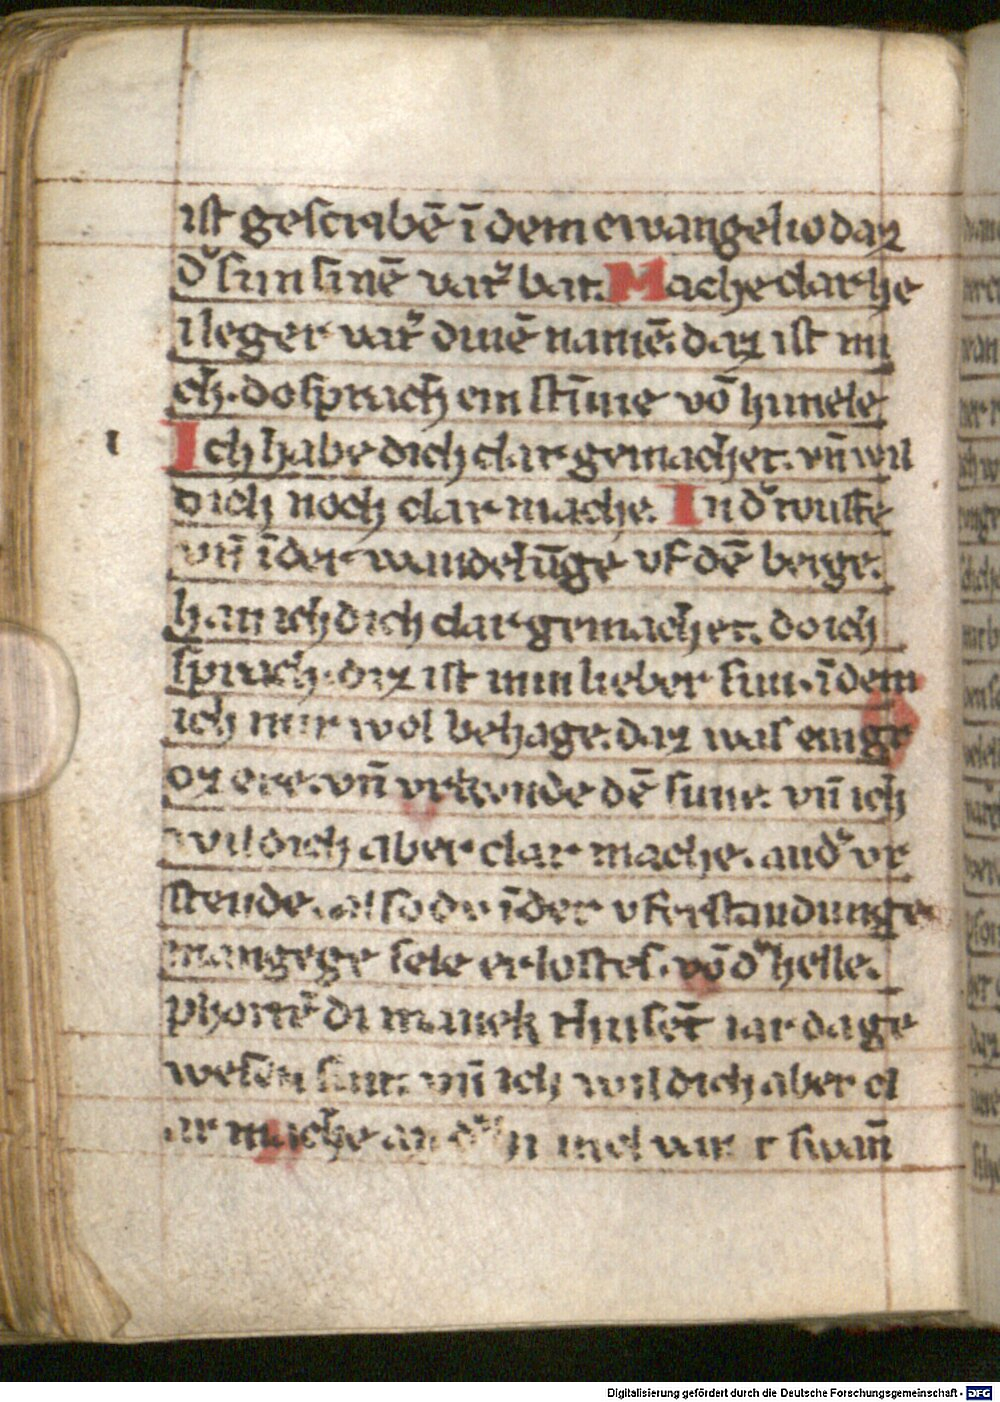 ist gescribē ī dem ewangelio daz
d͛ sun sinē vat͛ bat. Mache clar he
ileger vat͛ dinē namē. daz ist mi
ch. do sprach ein stīme vō himele.
ı Ich habe dich clar gemachet. vn̄ wil
dich noch clar mache. In d͛ wuste
vn̄ ī der wandelūge vf dē berge.
han ich dich clar gemachet. do ich
sprach. daz ist min lieber sun. ī dem
ich mir wol behage. daz was ein gr
oz ere. vn̄ vrkunde dē sune. vn̄ ich
wil dich aber clar mache. an d͛ vr
stende. also du ī der vferstandunge
mangege sele erlostes. vō d͛ helle.
phortē di manek thusēt iar da ge
wesen sint. vn̄ ich wil dich aber cl
ar mache an d͛ swan̄
Digitalisierung gefördert durch die Deutsche Forschungsgemeinschaft - DFG